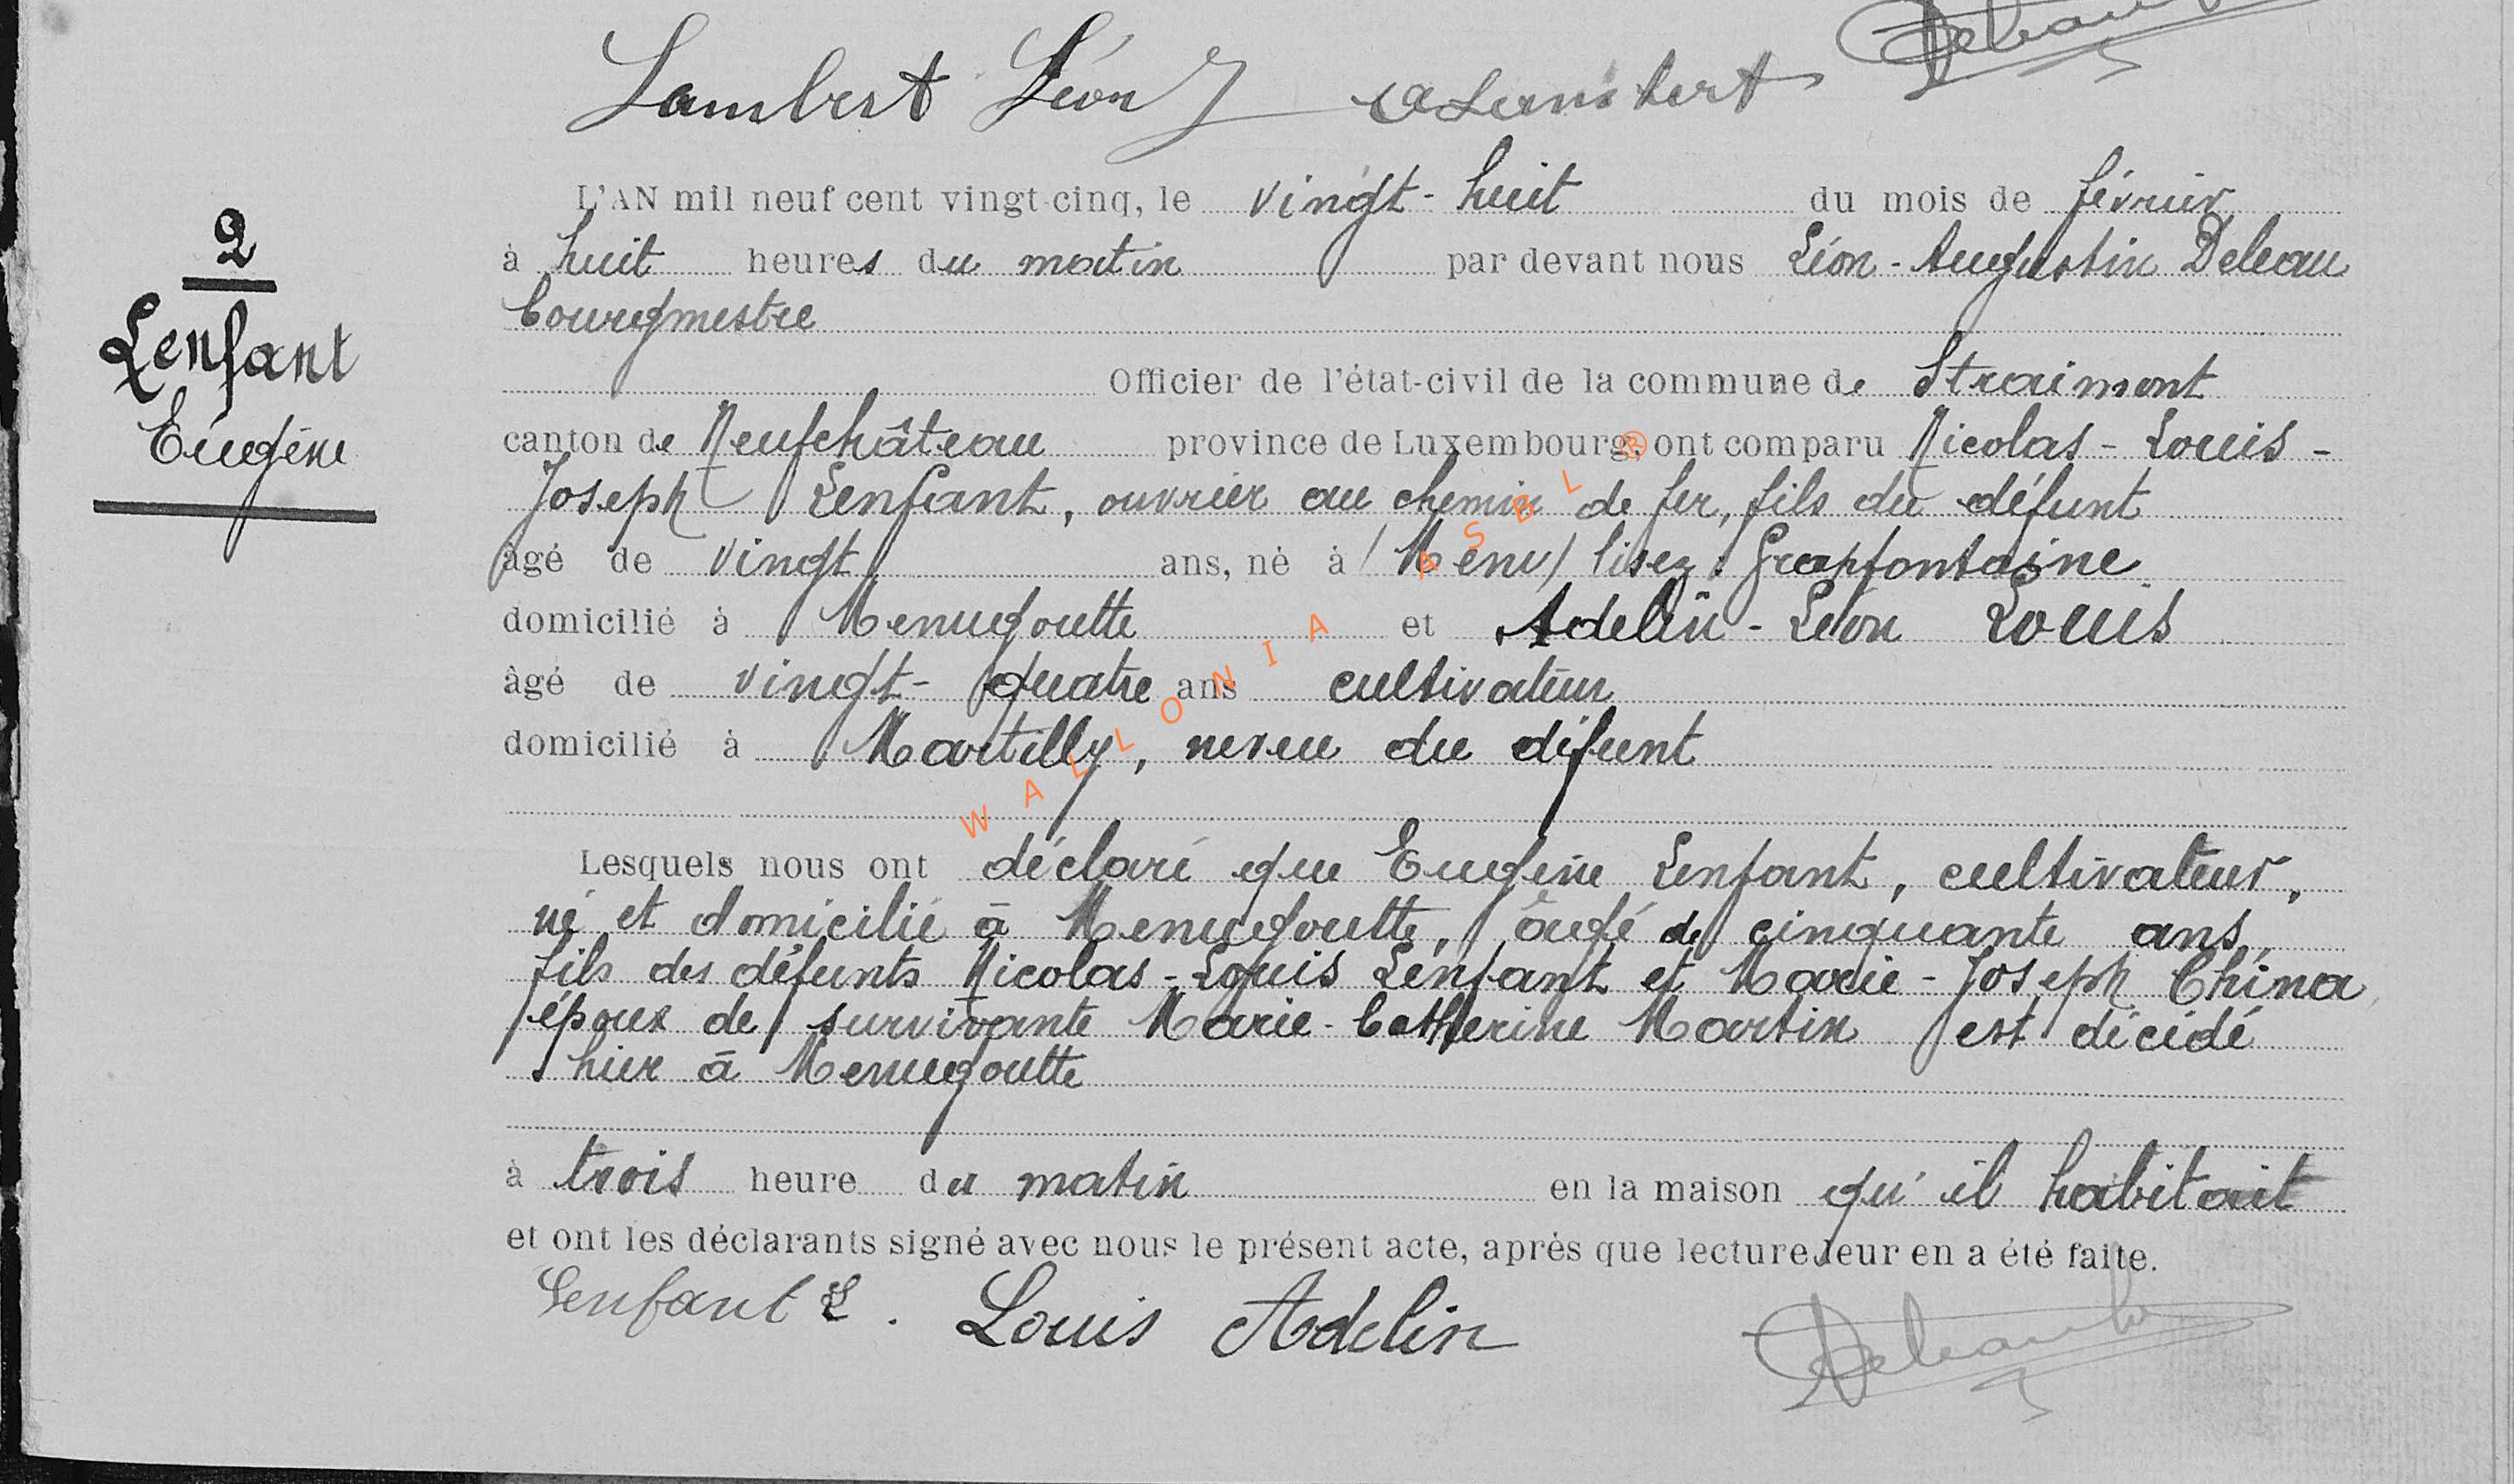 Lambert Léon A Lambert Deleau
L'AN mil neuf cent vingt-cinq, le vingt-huit du mois de février
à huit heures du matin par devant nous Léon-Augustin Deleau
bourgmestre
2
Lenfant
Eugène
Officier de l'état-civil de la commune de Straimont
canton de Neufchâteau province de Luxembourg, ont comparu Nicolas-Louis-
Joseph Lenfant, ouvrier au chemin de fer, fils du défunt
âgé de vingt ans, né à (Menu) lisez : Grapfontaine
domicilié à Menugoutte et Adelin-Léon Louis
âgé de vingt-quatre ans cultivateur
domicilié à Martilly, neveu du défunt
Lesquels nous ont déclaré que Eugène Lenfant, cultivateur,
né et domicilié à Menugoutte, âgé de cinquante ans,
fils des défunts Nicolas-Louis Lenfant et Marie-Joseph China
époux de survivante Marie-Catherine Martin est décédé
hier à Menugoutte
à trois heure du matin en la maison qu'il habitait
et ont les déclarants signé avec nous le présent acte, après que lecture leur en a été faite.
Lenfant L. Louis Adelin Deleau
WALLONIA ASBL ®